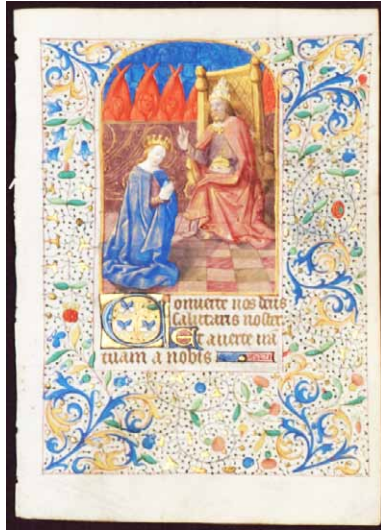 Conuerte nos deus
salutaris noster
Et auerte irā
tuam a nobis